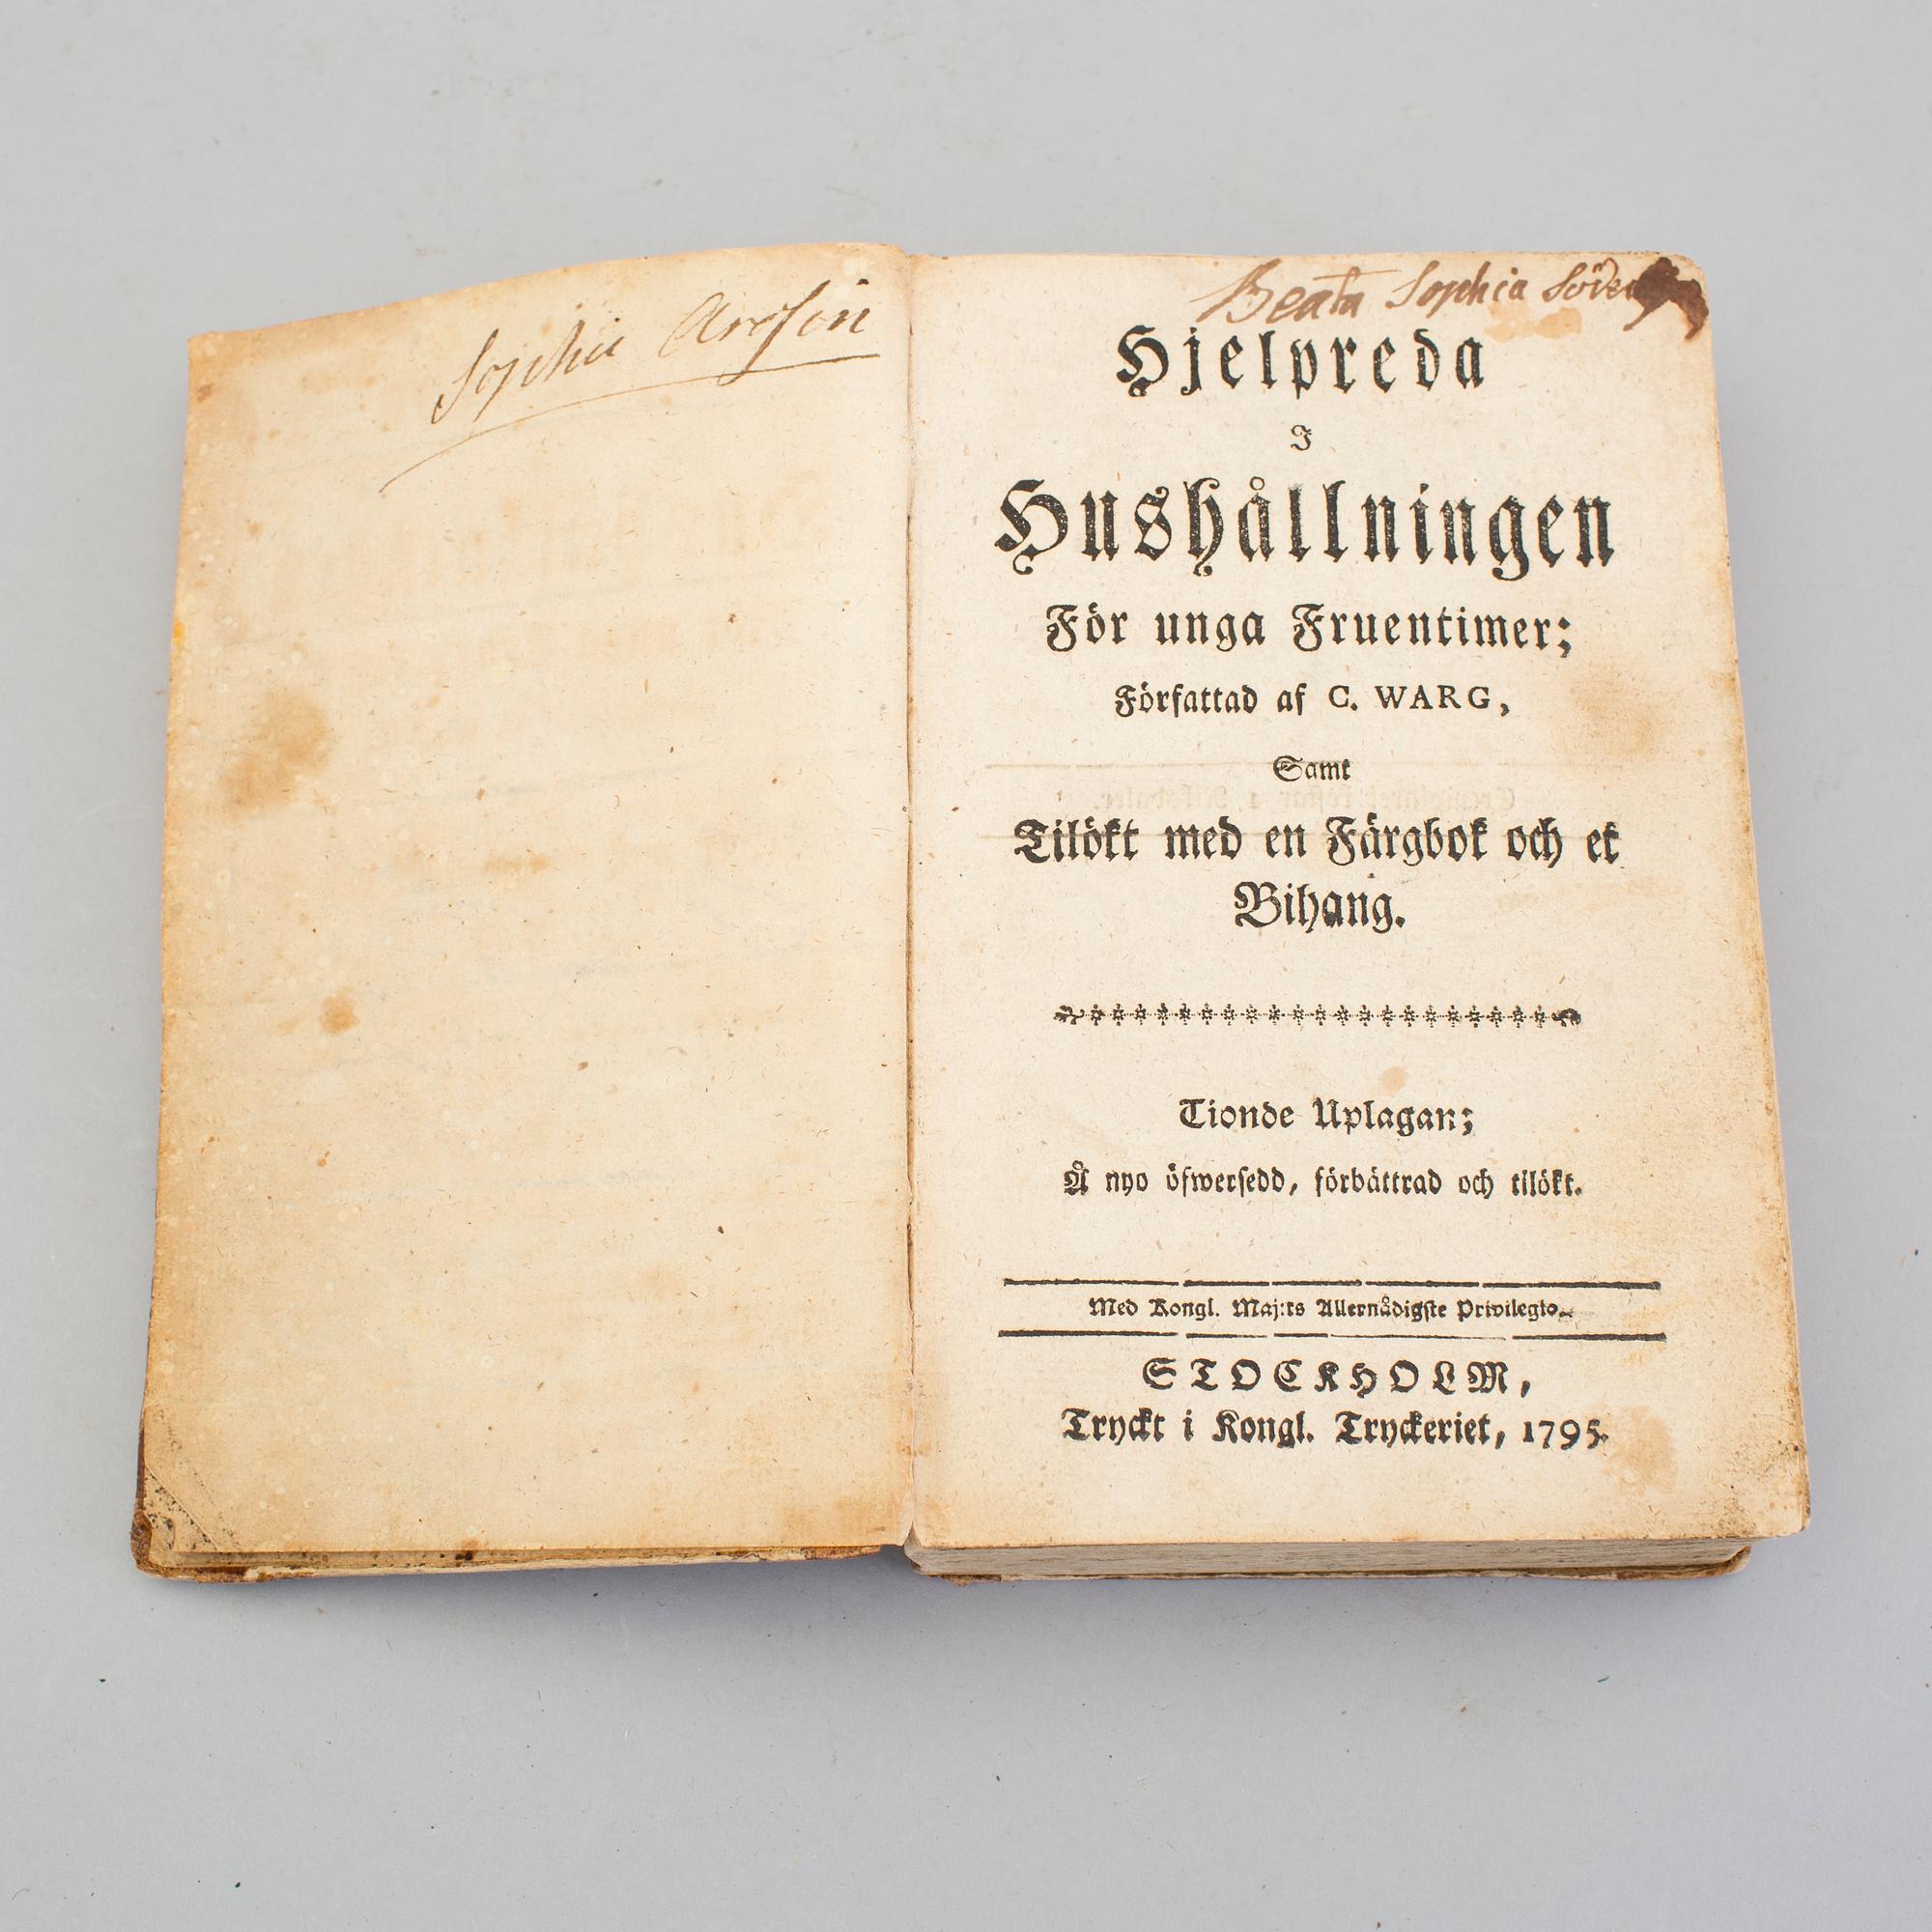 Sophia
Beata Sophia
Hjelpreda
I
Hushållningen
För unga Fruentimer;
Författad af C. WARG,
Samt
Tilökt med en Färgbok och et
Bihang.
Tionde Uplagan;
Å nyo öfwersedd, förbättrad och tilökt.
Med Kongl. Maj:ts Allernådigste Privilegio.
STOCKHOLM,
Tryckt i Kongl. Tryckeriet, 1795.